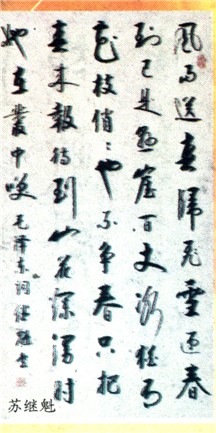 风雨送春归飞雪迎春
到已是悬崖百丈冰犹有
花枝俏々也不争春只把
春来报待到山花烂漫时
她在叢中咲 毛泽东词 继魁书
苏继魁